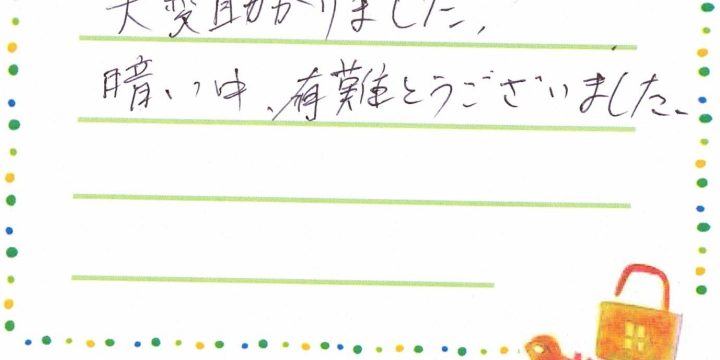 大変助かりました、
暗い中、有難とうございました、